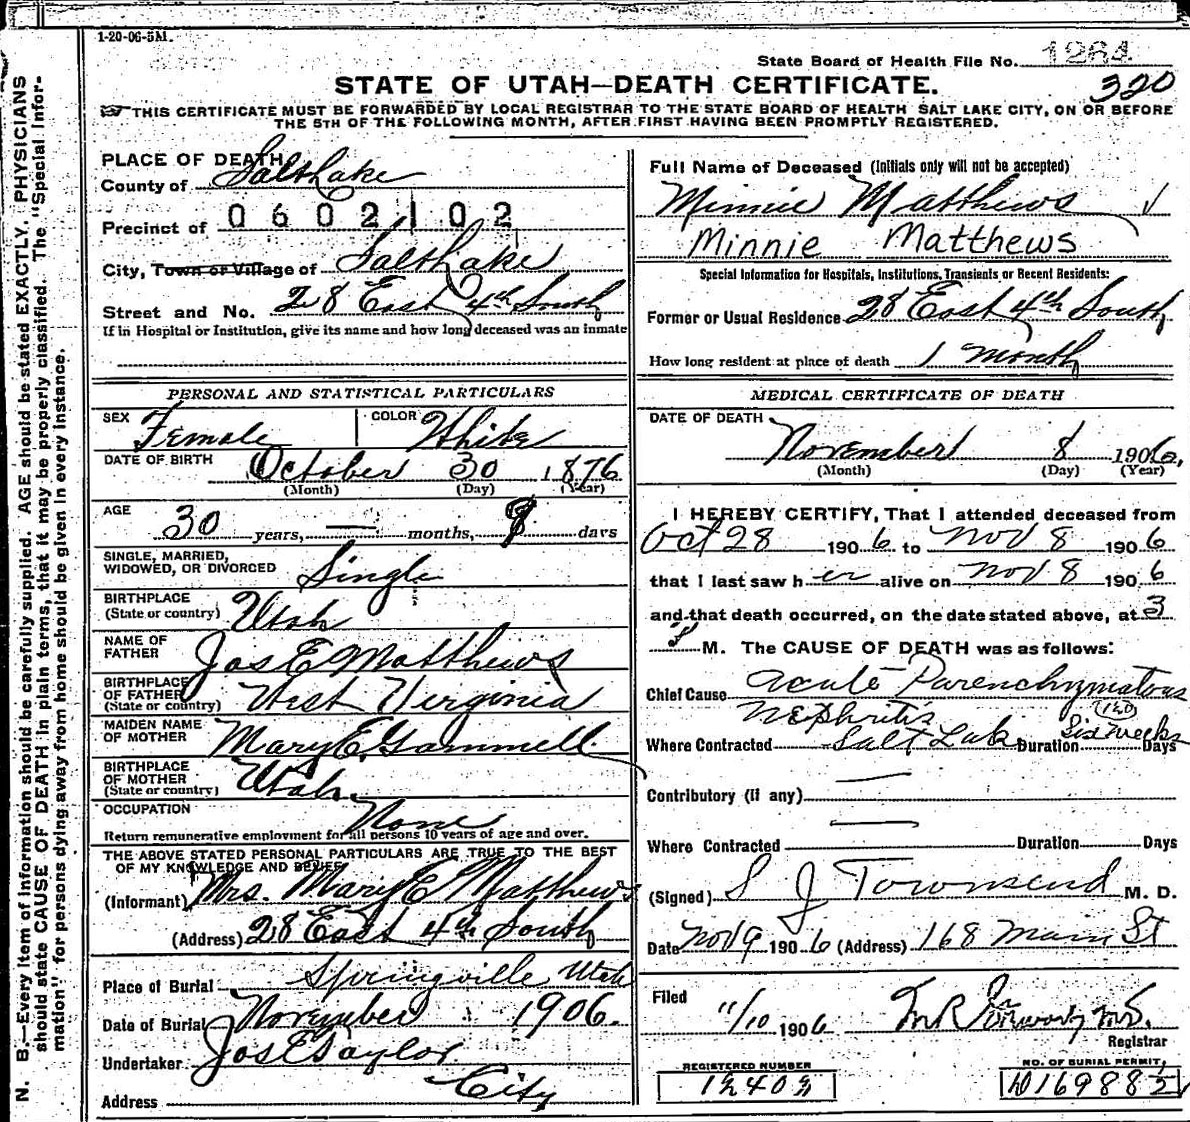 1-20-06-5M.
State Board of Health File No. 1264
STATE OF UTAH—DEATH CERTIFICATE.
320
THIS CERTIFICATE MUST BE FORWARDED BY LOCAL REGISTRAR TO THE STATE BOARD OF HEALTH SALT LAKE CITY, ON OR BEFORE
THE 5TH OF THE FOLLOWING MONTH, AFTER FIRST HAVING BEEN PROMPTLY REGISTERED.
N. B.—Every item of information should be carefully supplied. AGE should be stated EXACTLY. PHYSICIANS
should state CAUSE OF DEATH in plain terms, that it may be properly classified. The "Special Infor-
mation" for persons dying away from home should be given in every instance.
PLACE OF DEATH
County of Salt Lake
Precinct of 0602102
City, Town or Village of Salt Lake
Street and No. 28 East 4th South
If in Hospital or Institution, give its name and how long deceased was an inmate
PERSONAL AND STATISTICAL PARTICULARS
SEX Female COLOR White
DATE OF BIRTH October 30 1876
(Month) (Day) (Year)
AGE 30 years, — months, 9 days
SINGLE, MARRIED,
WIDOWED, OR DIVORCED Single
BIRTHPLACE
(State or country) Utah
NAME OF
FATHER Jas E Matthews
BIRTHPLACE
OF FATHER
(State or country) West Verginia
MAIDEN NAME
OF MOTHER Mary E. Gammell
BIRTHPLACE
OF MOTHER
(State or country) Utah.
OCCUPATION None
Return remunerative employment for all persons 10 years of age and over.
THE ABOVE STATED PERSONAL PARTICULARS ARE TRUE TO THE BEST
OF MY KNOWLEDGE AND BELIEF
(Informant) Mrs. Mary E Matthews
(Address) 28 East 4th South
Place of Burial Springville Utah
Date of Burial November 1906.
Undertaker Jos E Taylor
Address City
Full Name of Deceased (Initials only will not be accepted)
Minnie Matthews
Minnie Matthews
Special Information for Hospitals, Institutions, Transients or Recent Residents:
Former or Usual Residence 28 East 4th South
How long resident at place of death 1 Month
MEDICAL CERTIFICATE OF DEATH
DATE OF DEATH
November 8 1906,
(Month) (Day) (Year)
I HEREBY CERTIFY, That I attended deceased from
Oct 28 1906 to Nov 8 1906
that I last saw her alive on Nov 8 1906
and that death occurred, on the date stated above, at 3
M. The CAUSE OF DEATH was as follows:
Chief Cause Acute Parenchymatous
Nephritis 120
Where Contracted Salt Lake Duration Six weeks Days
Contributory (if any) —
Where Contracted — Duration Days
(Signed) S J Townsend M. D.
Date Nov 9 1906 (Address) 168 Main St
Filed 11/10 1906
Registrar
REGISTERED NUMBER
NO. OF BURIAL PERMIT,
D16988 1/2